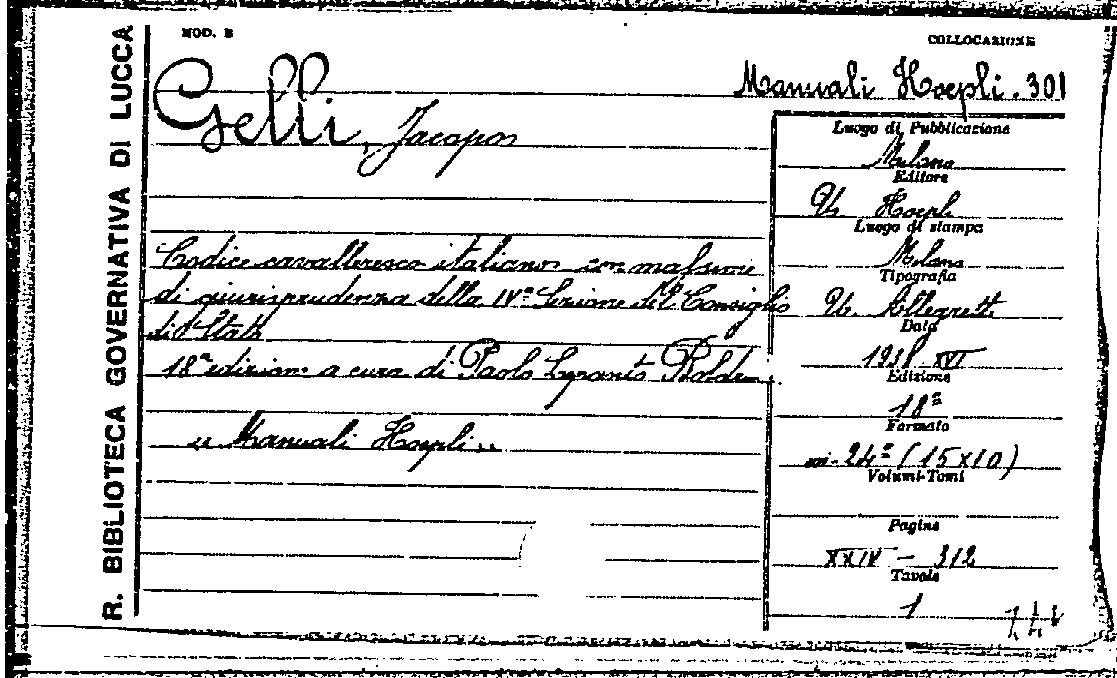 R. BIBLIOTECA GOVERNATIVA DI LUCCA
MOD. B
COLLOCAZIONE
Manuali Hoepli. 301
Gelli, Jacopo
Codice cavalleresco italiano con massime
di giurisprudenza della IVª Sezione del Consiglio
di Stato
18ª edizione a cura di Paolo
"Manuali Hoepli"
Luogo di Pubblicazione
Milano
Editore
U. Hoepli
Luogo di stampa
Milano
Tipografia
U. Allegretti
Data
1938-XVI
Edizione
18ª
Formato
in-24º (15x10)
Volumi-Tomi
Pagine
XXIV - 312
Tavole
1